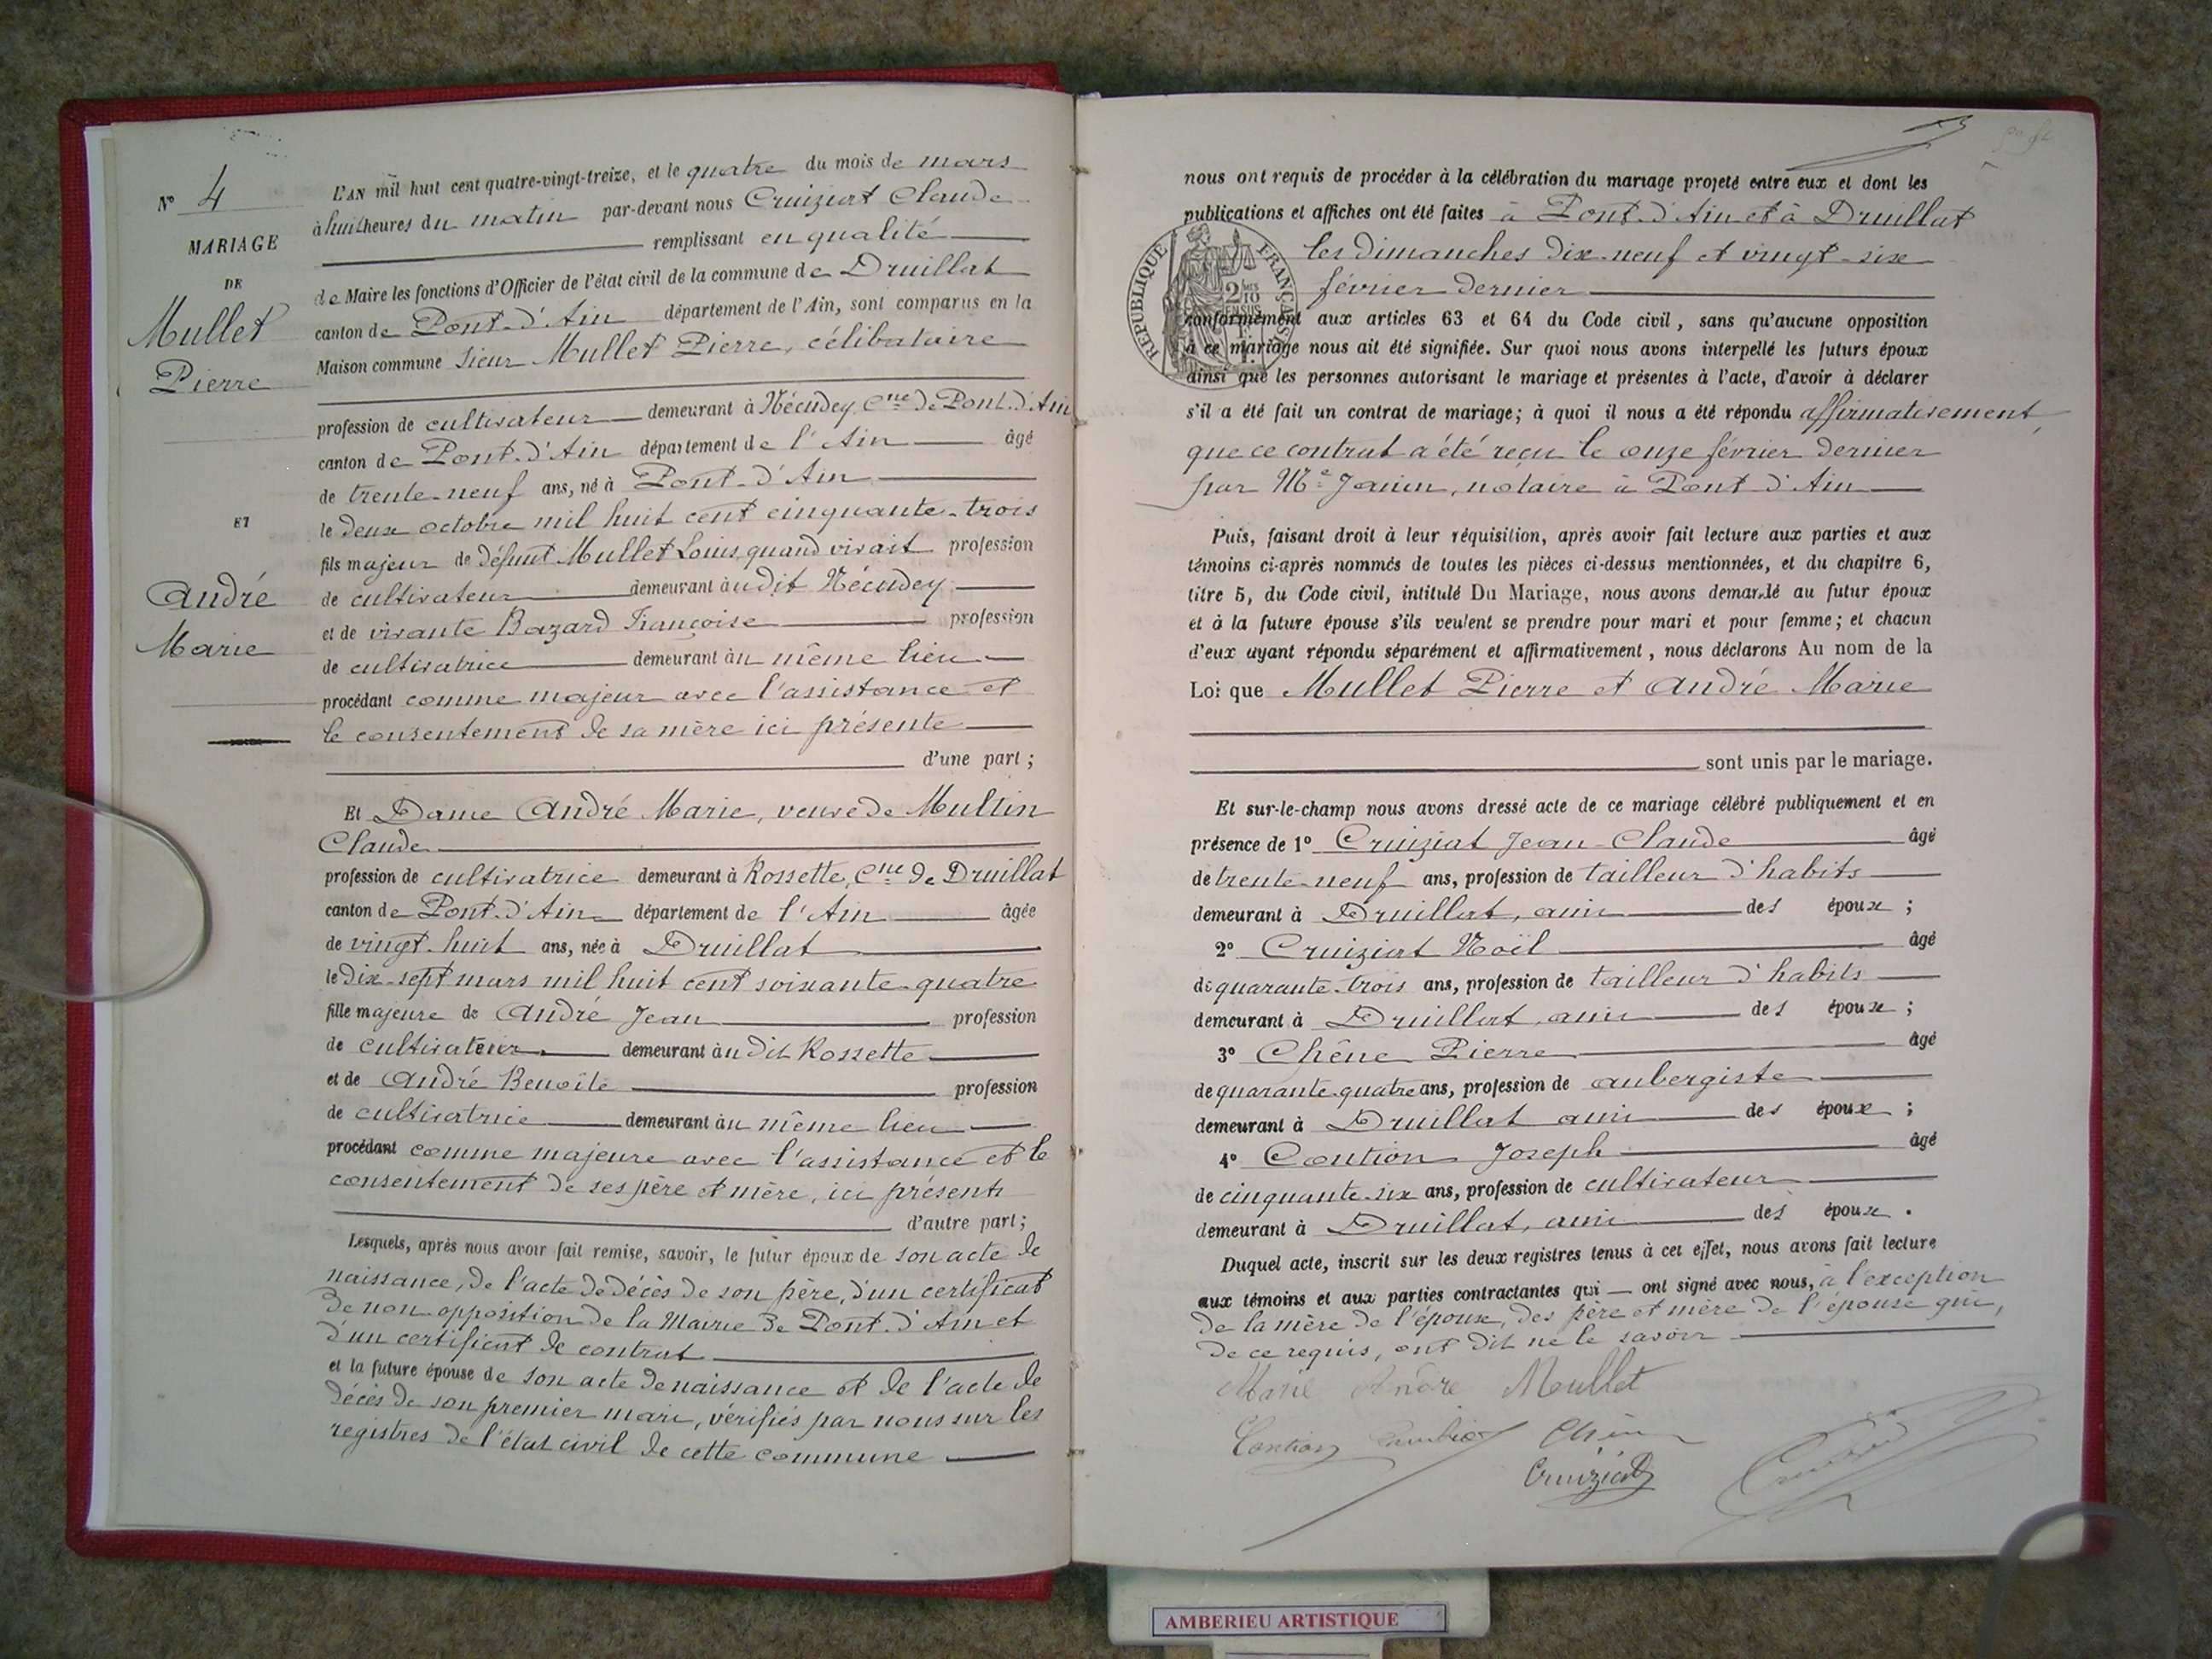 Nº 4
MARIAGE
DE
Mullet
Pierre
ET
André
Marie
L'AN mil huit cent quatre-vingt-treize, et le quatre du mois de mars
à huit heures du matin par-devant nous Cruiziat Claude
remplissant en qualité
de Maire les fonctions d'Officier de l'état civil de la commune de Druillat
canton de Pont-d'Ain département de l'Ain, sont comparus en la
Maison commune sieur Mullet Pierre, célibataire
profession de cultivateur demeurant à Nécudey, Cne de Pont-d'Ain
canton de Pont-d'Ain département de l'Ain âgé
de trente-neuf ans, né à Pont-d'Ain
le deux octobre mil huit cent cinquante-trois
fils majeur de défunt Mullet Louis, quand vivait profession
de cultivateur demeurant au dit Nécudey
et de vivante Bazard Françoise profession
de cultivatrice demeurant au même lieu
procédant comme majeur avec l'assistance et
le consentement de sa mère ici présente
d'une part ;
Et Dame André Marie, veuve de Multin
Claude
profession de cultivatrice demeurant à Rossette, Cne de Druillat
canton de Pont-d'Ain département de l'Ain âgée
de vingt-huit ans, née à Druillat
le dix-sept mars mil huit cent soixante-quatre
fille majeure de André Jean profession
de cultivateur demeurant au dit Rossette
et de André Benoîte profession
de cultivatrice demeurant au même lieu
procédant comme majeure avec l'assistance et le
consentement de ses père et mère, ici présents
d'autre part ;
Lesquels, après nous avoir fait remise, savoir, le futur époux de son acte de
naissance, de l'acte de décès de son père, d'un certificat
de non-opposition de la Mairie de Pont-d'Ain et
d'un certificat de contrat
et la future épouse de son acte de naissance et de l'acte de
décès de son premier mari, vérifiés par nous sur les
registres de l'état civil de cette commune
nous ont requis de procéder à la célébration du mariage projeté entre eux et dont les
publications et affiches ont été faites à Pont-d'Ain et à Druillat
les dimanches dix-neuf et vingt-six
février dernier
RÉPUBLIQUE FRANÇAISE
conformément aux articles 63 et 64 du Code civil, sans qu'aucune opposition
à ce mariage nous ait été signifiée. Sur quoi nous avons interpellé les futurs époux
ainsi que les personnes autorisant le mariage et présentes à l'acte, d'avoir à déclarer
s'il a été fait un contrat de mariage ; à quoi il nous a été répondu affirmativement,
que ce contrat a été reçu le onze février dernier
par Me Janin, notaire à Pont d'Ain
Puis, faisant droit à leur réquisition, après avoir fait lecture aux parties et aux
témoins ci-après nommés de toutes les pièces ci-dessus mentionnées, et du chapitre 6,
titre 5, du Code civil, intitulé Du Mariage, nous avons demandé au futur époux
et à la future épouse s'ils veulent se prendre pour mari et pour femme ; et chacun
d'eux ayant répondu séparément et affirmativement, nous déclarons Au nom de la
Loi que Mullet Pierre et André Marie
sont unis par le mariage.
Et sur-le-champ nous avons dressé acte de ce mariage célébré publiquement et en
présence de 1º Cruiziat Jean-Claude âgé
de trente-neuf ans, profession de tailleur d'habits
demeurant à Druillat, ami des époux ;
2º Cruiziat Noël âgé
de quarante-trois ans, profession de tailleur d'habits
demeurant à Druillat, ami des époux ;
3º Chêne Pierre âgé
de quarante-quatre ans, profession de aubergiste
demeurant à Druillat ami des époux ;
4º Contion Joseph âgé
de cinquante-six ans, profession de cultivateur
demeurant à Druillat, ami des époux.
Duquel acte, inscrit sur les deux registres tenus à cet effet, nous avons fait lecture
aux témoins et aux parties contractantes qui ont signé avec nous, à l'exception
de la mère de l'époux, des père et mère de l'épouse qui,
de ce requis, ont dit ne le savoir
Marie André Mullet
Contion Chêne
Cruiziat
AMBERIEU ARTISTIQUE